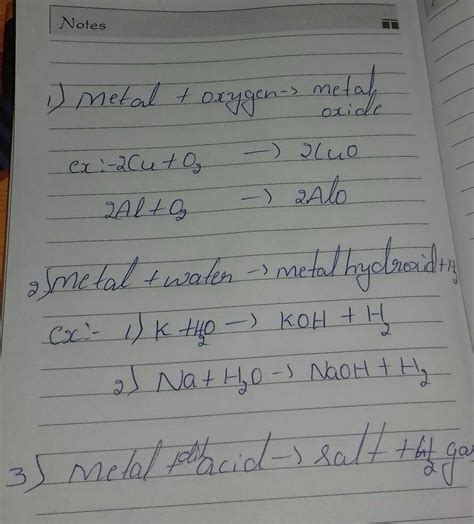 Notes
1) Metal + oxygen → metal
oxide
ex:- 2Cu + O₂ → 2CuO
2Al + O₂ → 2AlO
2) metal + water → metal hydroxid + H₂
ex:- 1) K + H₂O → KOH + H₂
2) Na + H₂O → NaOH + H₂
3) Metal + dil acid → salt + H₂ gas